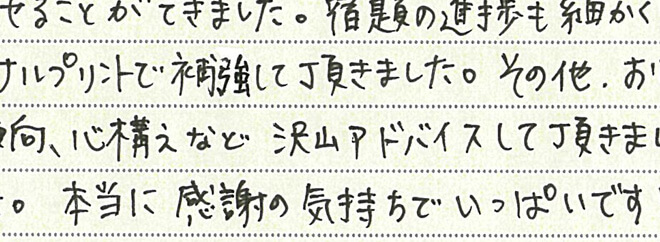 せることができました。宿題の進捗も細かく
ナルプリントで補強して頂きました。その他、お
向、心構えなど沢山アドバイスして頂きまし
。本当に感謝の気持ちでいっぱいです